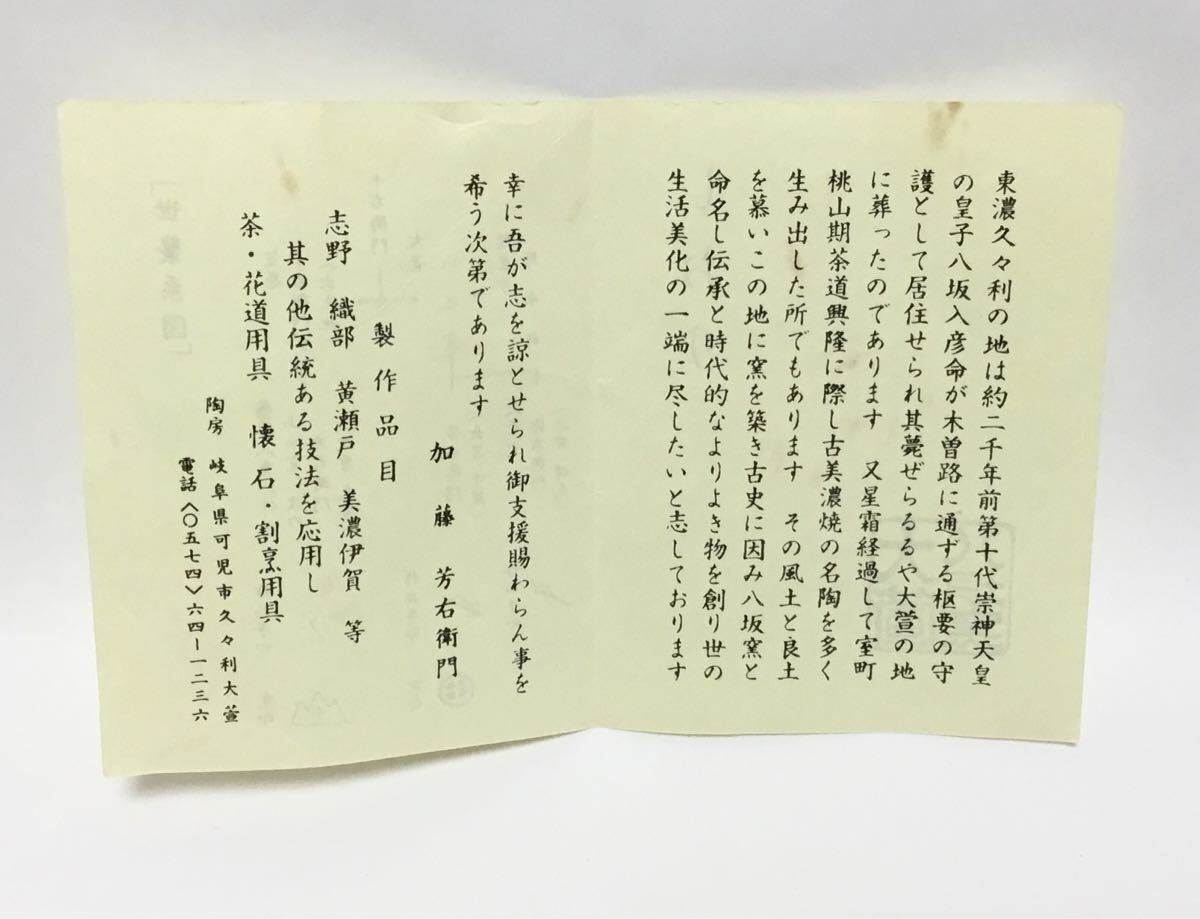 東濃久々利の地は約二千年前第十代崇神天皇
の皇子八坂入彦命が木曽路に通ずる枢要の守
護として居住せられ其薨ぜらるるや大萱の地
に葬ったのであります 又星霜経過して室町
桃山期茶道興隆に際し古美濃焼の名陶を多く
生み出した所でもあります その風土と良土
を慕いこの地に窯を築き古史に因み八坂窯と
命名し伝承と時代的なよりよき物を創り世の
生活美化の一端に尽したいと志しております
幸に吾が志を諒とせられ御支援賜わらん事を
希う次第であります
加藤 芳右衛門
製作品目
志野 織部 黄瀬戸 美濃伊賀 等
其の他伝統ある技法を応用し
茶・花道用具 懐石・割烹用具
陶房 岐阜県可児市久々利大萱
電話〈〇五七四〉六四ー一二三六